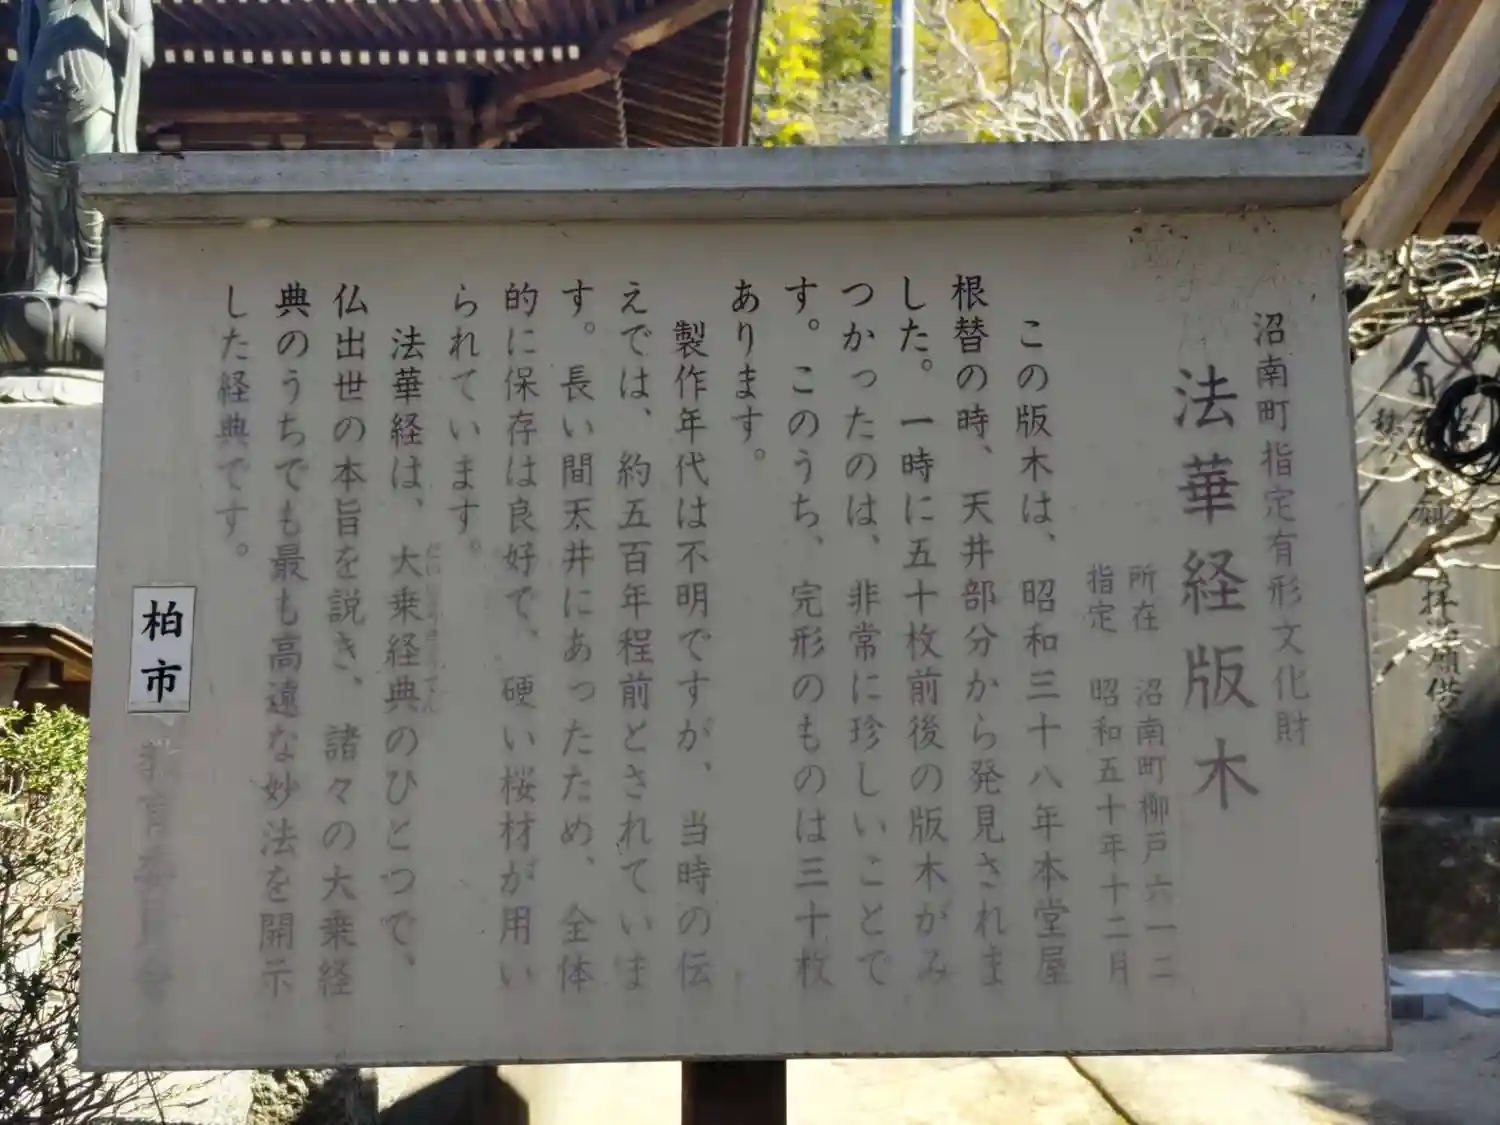 沼南町指定有形文化財
法華経版木
所在　沼南町柳戸六一二
指定　昭和五十年十二月
この版木は、昭和三十八年本堂屋
根替の時、天井部分から発見されま
した。一時に五十枚前後の版木がみ
つかったのは、非常に珍しいことで
す。このうち、完形のものは三十枚
あります。
製作年代は不明ですが、当時の伝
えでは、約五百年程前とされていま
す。長い間天井にあったため、全体
的に保存は良好で、硬い桜材が用い
られています。
法華経は、大乗経典のひとつで、
仏出世の本旨を説き、諸々の大乗経
典のうちでも最も高遠な妙法を開示
した経典です。
柏市教育委員会